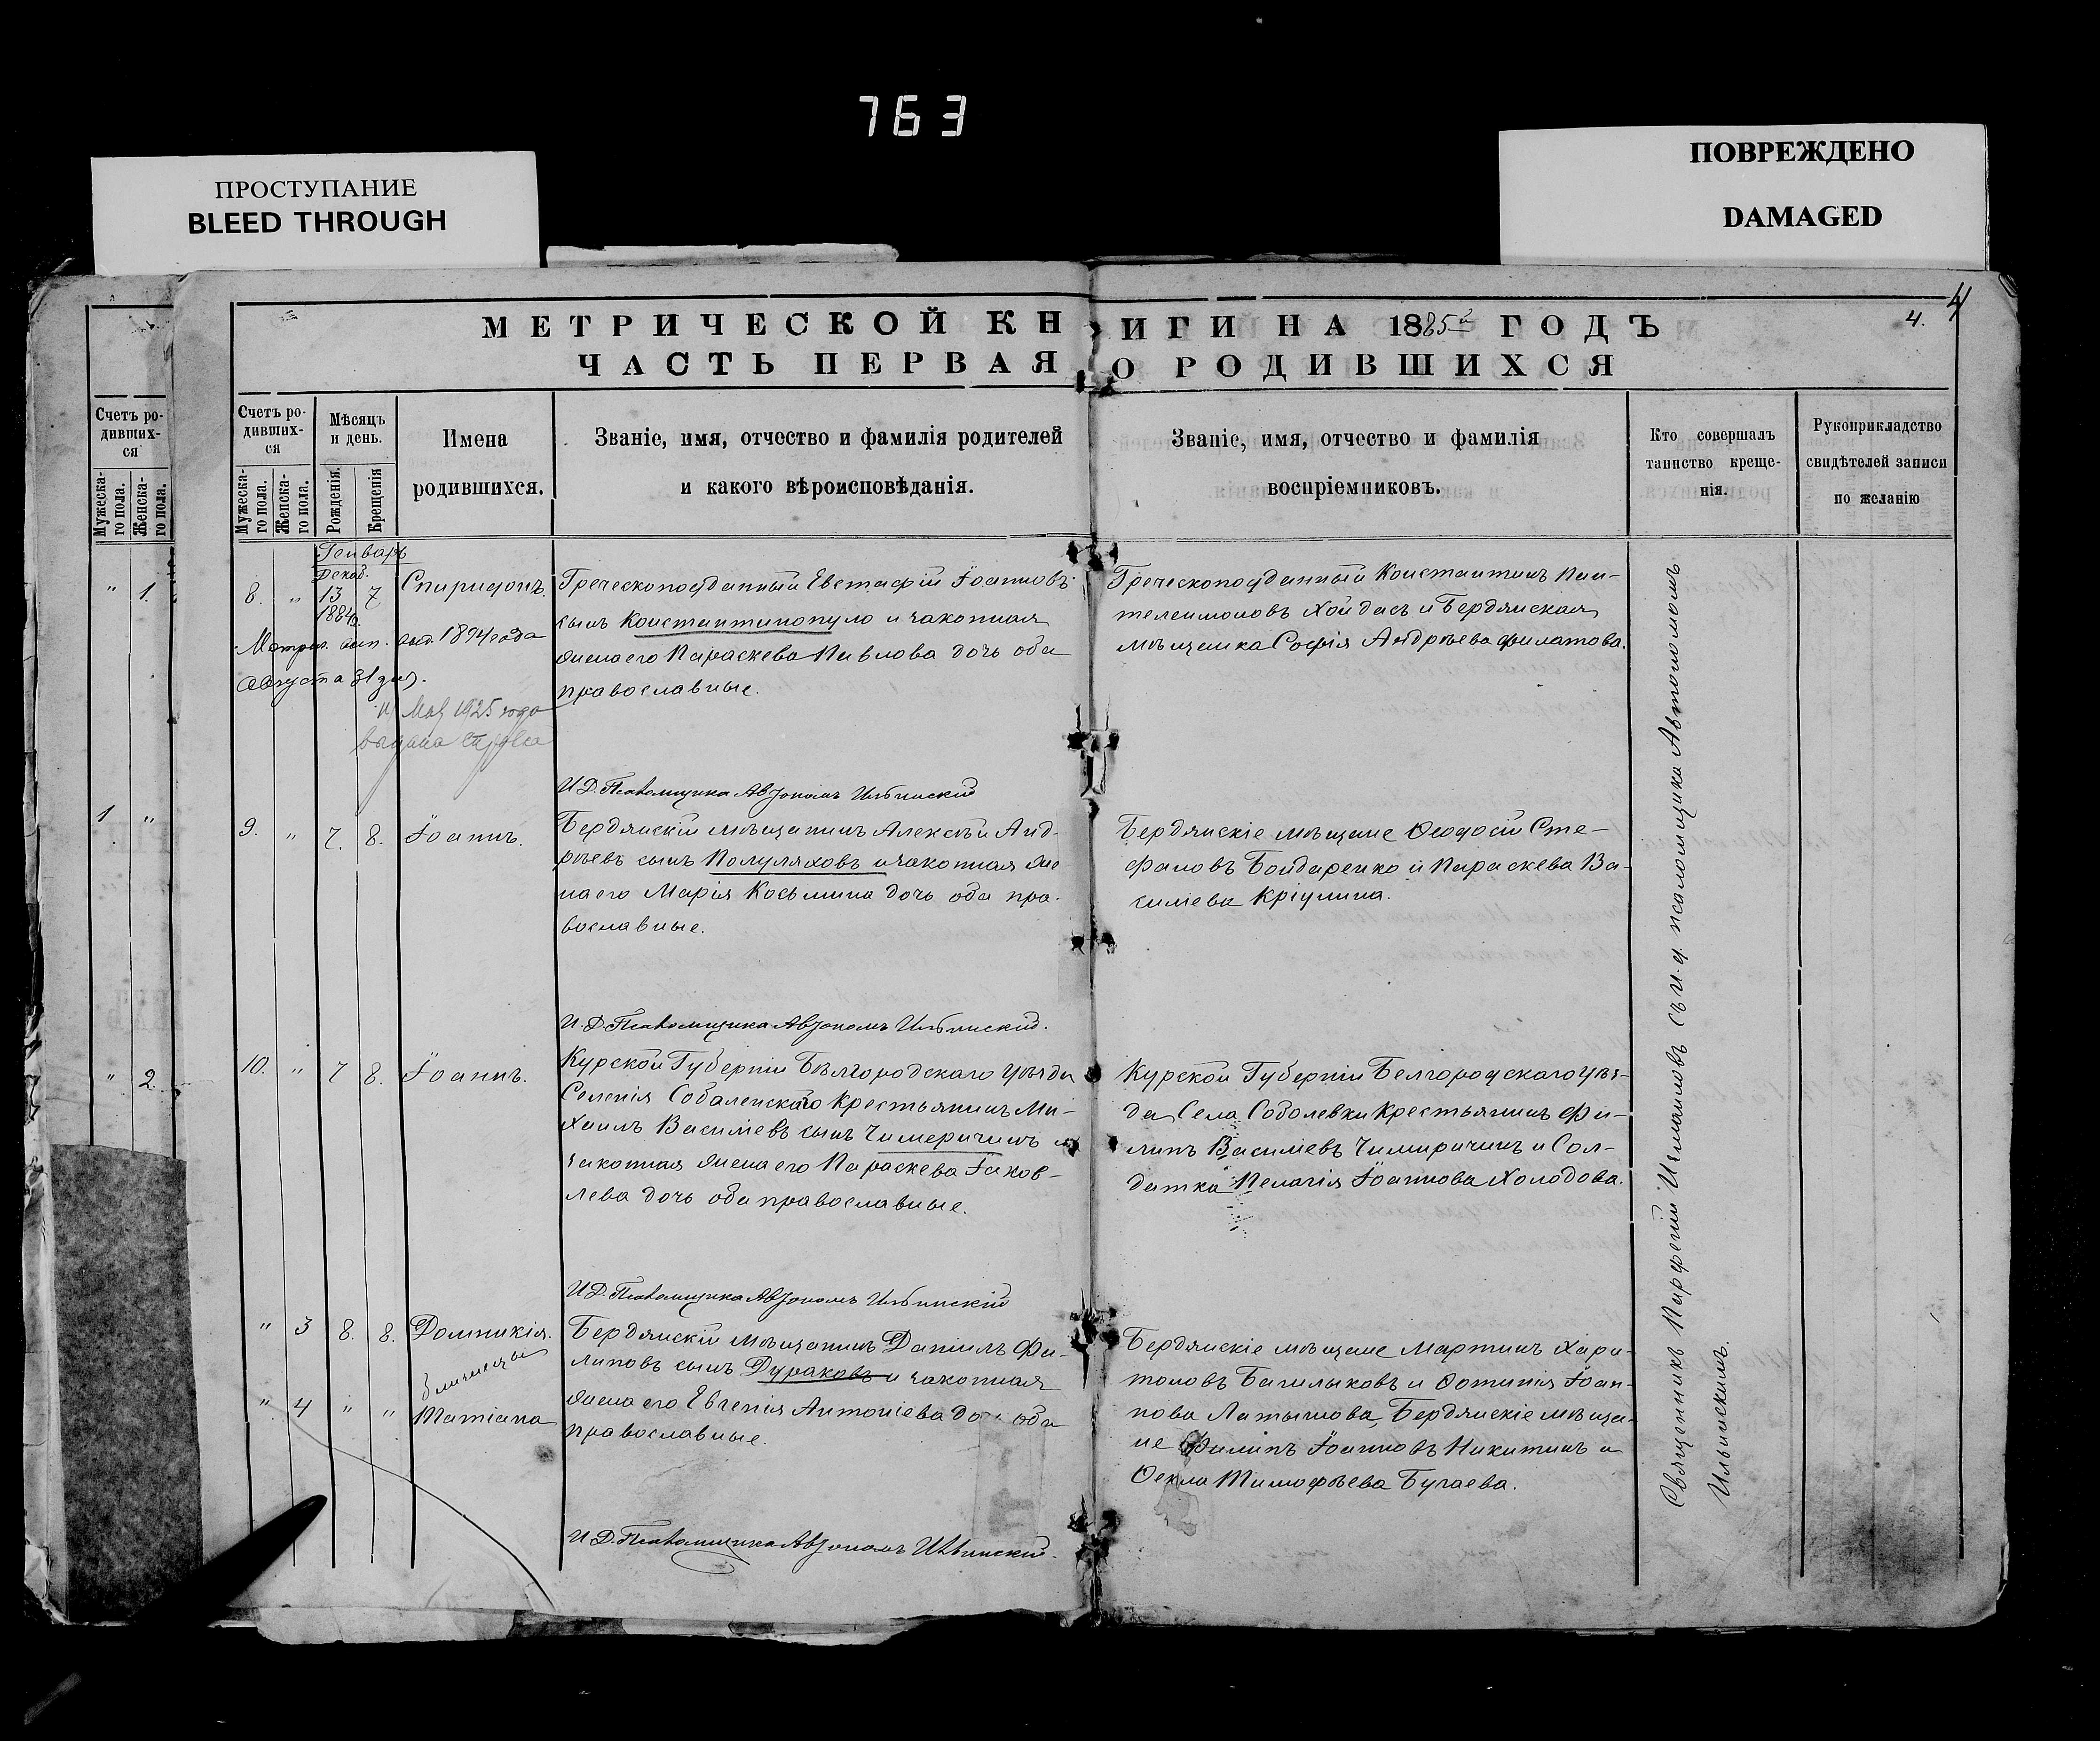 763
ПРОСТУПАНИЕ
BLEED THROUGH
ПОВРЕЖДЕНО
DAMAGED
МЕТРИЧЕСКОЙ КНИГИ НА 1885й ГОДЪ
4.
4
ЧАСТЬ ПЕРВАЯ О РОДИВШИХСЯ
Счетъ ро-
дивших-
ся
Мужеска-
го пола.
Женска-
го пола.
" 1.
1 "
" 2.
Счетъ ро-
дивших-
ся
Мужеска-
го пола.
Женска-
го пола.
Мѣсяцъ
и день.
Рожденія.
Крещенія
Имена
родившихся.
Званіе, имя, отчество и фамилія родителей
и какого вѣроисповѣданія.
Званіе, имя, отчество и фамилія
воспріемниковъ.
Кто совершалъ
таинство креще-
нія.
Рукоприкладство
свидѣтелей записи
по желанію
Генварь
Декаб.
8. " 13 7 Спиридонъ.
1884г.
Метрич. вып. выд. 1894 года
Августа 31 дня.
Мая 1925 года
выдана справка
Греческоподданный Евстафій Іоанновъ
сынъ Константинопуло и законная
жена его Параскева Павлова дочь оба
православные.
Греческоподданный Константинъ Пан-
телеимоновъ Хойдасъ и Бердянская
мѣщанка Софія Андрѣева Филатова.
И Д. Псаломщика Автономъ Ильинскій
9. " 7. 8. Іоаннъ.
Бердянскій мѣщанинъ Алексѣй Анд-
рѣевъ сынъ Полуляховъ и законная же
на его Марія Косьмина дочь оба пра-
вославные.
Бердянскіе мѣщане Ѳеодосій Сте-
фановъ Бондаренко и Параскева Ва-
силіева Кріулина.
И. Д. Псаломщика Автономъ Ильинскій.
10. " 7 8. Іоаннъ.
Курской Губерніи Бѣлгородскаго уѣзда
Селенія Собалевскаго Крестьянинъ Ми-
хаилъ Василіевъ сынъ Чимеричинъ и
законная жена его Параскева Іаков-
лева дочь оба православные.
Курской Губерніи Белгородскаго уѣз-
да Села Соболевки Крестьянинъ Фи-
липъ Василіевъ Чимиричинъ и Сол-
датка Пелагія Іоаннова Холодова.
И Д. Псаломщика Автономъ Ильинскій
" 3 8. 8. Домникія.
близнецы
" 4 " " Татіана
Бердянскій мѣщанинъ Даніилъ Фи-
липовъ сынъ Дураковъ и законная
жена его Евгенія Антоніева дочь оба
православные.
Бердянскіе мѣщане Мартинъ Хари-
тоновъ Багилыковъ и Фотинія Іоан-
нова Латышова, Бердянскіе мѣща-
не Филипъ Іоанновъ Никитинъ и
Ѳекла Тимофѣева Бугаева.
И Д. Псаломщика Автономъ Ильинскій.
Священникъ Парфеній Игнатовъ съ и. д. псаломщика Автономомъ
Ильинскимъ.